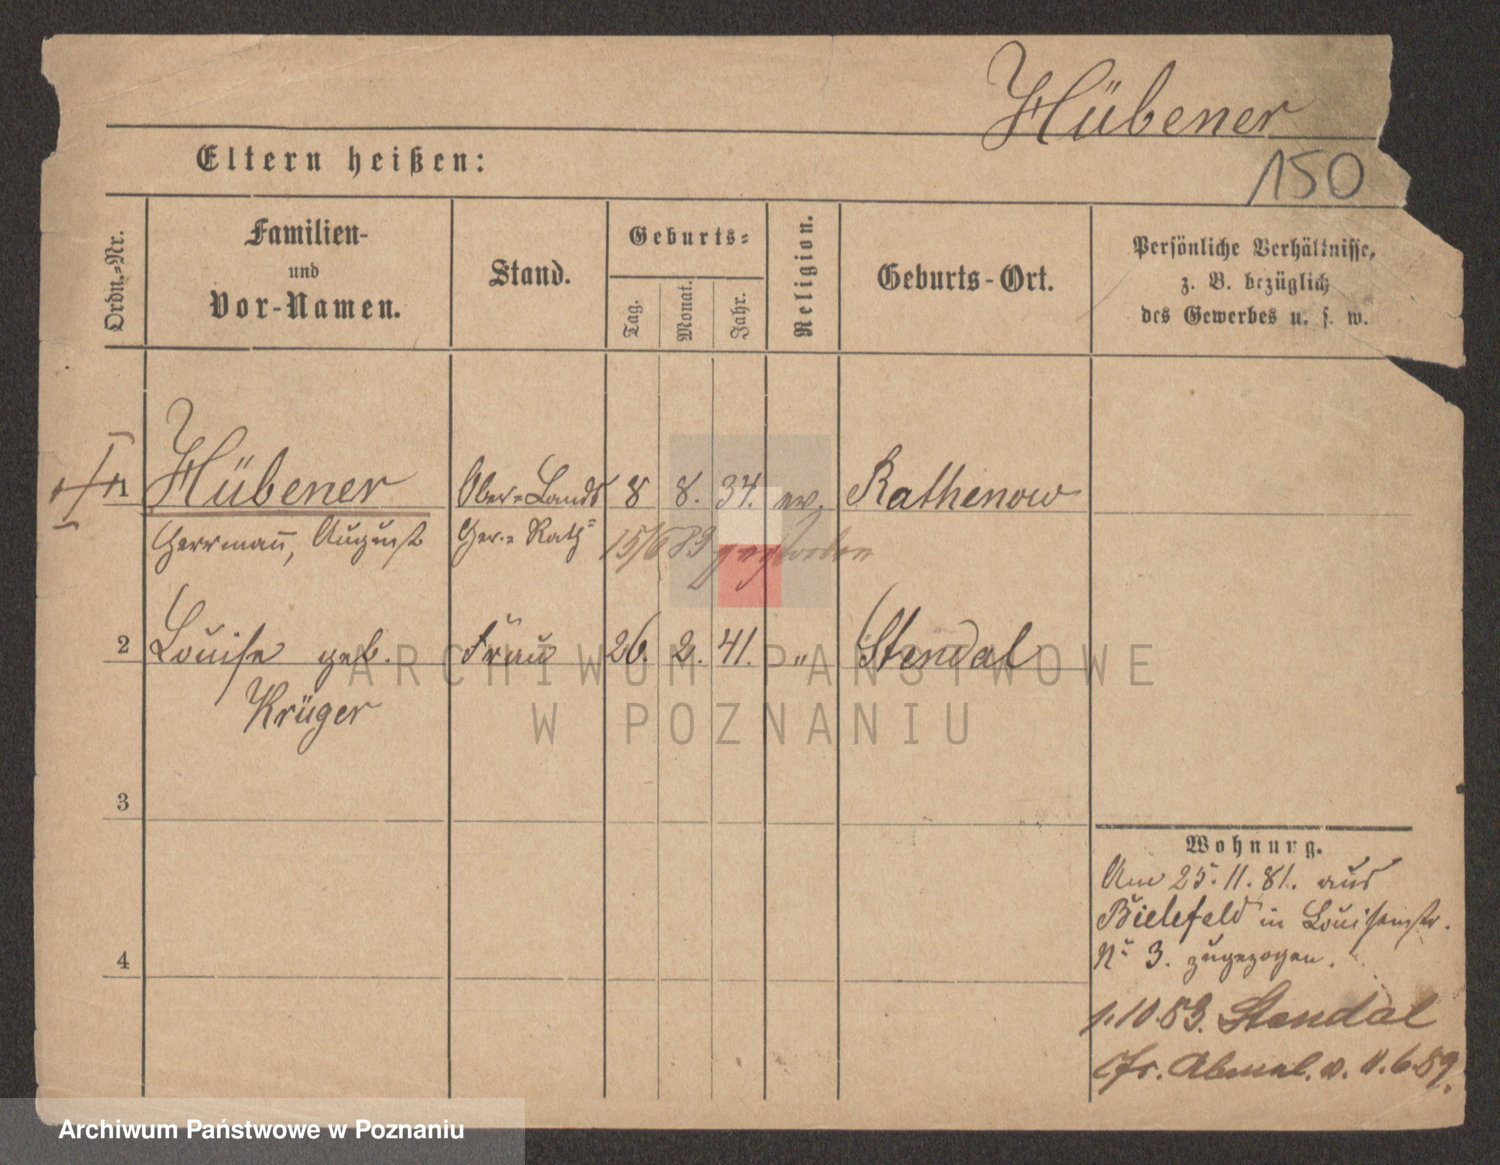 Hübener
150
Eltern heißen:
Ordn.-Nr.
Familien-
und
Vor-Namen.
Stand.
Geburts-
Tag.
Monat.
Jahr.
Religion.
Geburts-Ort.
Persönliche Verhältnisse,
z. B. bezüglich
des Gewerbes u. s. w.
1 Hübener Ober-Lands 8 8. 34. ev. Rathenow
Herrmann, August Ger.- Rath 15/6 89 gestorben
2 Louise geb. Frau 26. 2. 41. " Stendal
Krüger
3
4
Wohnung.
Am 25. 11. 81. aus
Bielefeld in Louisenstr.
No 3. zugezogen.
1.10.83. Stendal
Fr. v. 6.89.
ARCHIWUM PAŃSTWOWE
W POZNANIU
Archiwum Państwowe w Poznaniu